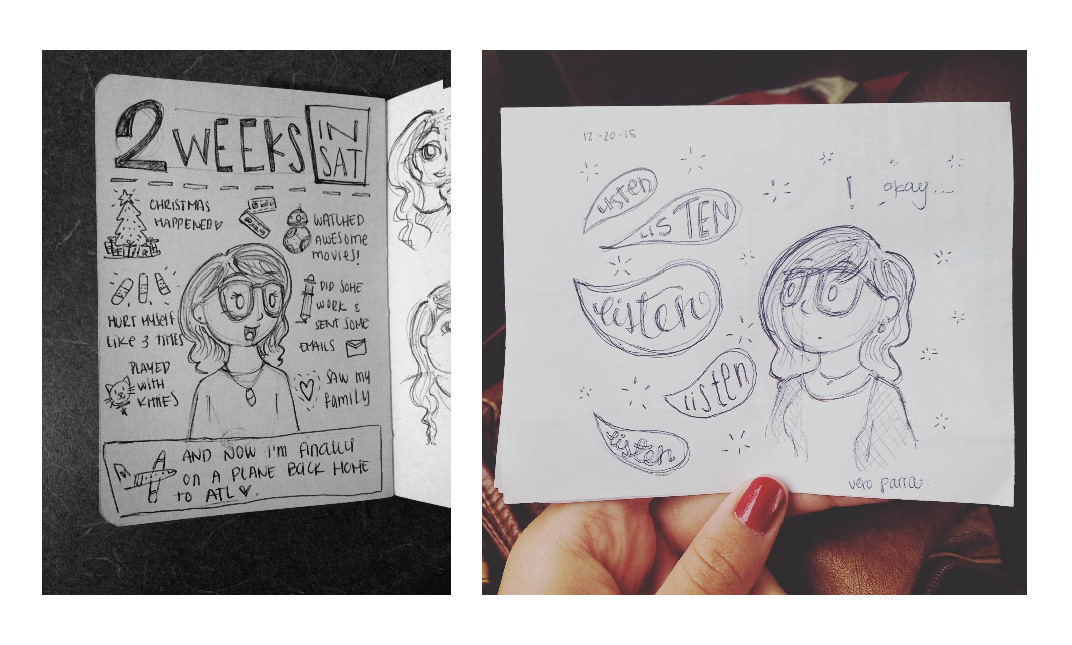 2 WEEKS IN SAT
CHRISTMAS
HAPPENED
WATCHED
AWESOME
MOVIES!
HURT MYSELF
LIKE 3 TIMES
DID SOME
WORK &
SENT SOME
EMAILS
PLAYED
WITH
KITTIES
SAW MY
FAMILY
AND NOW I'M FINALLY
ON A PLANE BACK HOME
TO ATL
12-20-15
Listen
LISTEN
listen
listen
listen
! okay...
vero parra